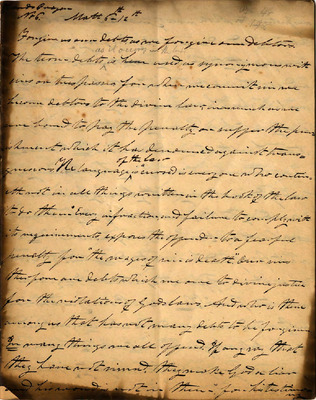 No 6. Math 6th 12th
Forgive us our debts as we forgive our debtors
The term debts, is here used as synonymous with
sins or trespasses for when we commit sin we
become debtors to the divine law, inasmuch as we
are bound to pay the penalty or suffer the pun
ishment which it has denounced against trans-
of the law
gressors. The language is cursed is every one who contin
eth not in all things written in the book of the law
to do them. Every infraction and failure to comply with
its requirements exposes the offender to a fearful
penalty for "the wages of sin is death". Our sins
therefore are debts which we owe to divine justice
for the violations of Gods law. And who is there
among us that has not many debts to be forgiven
In many things we all offend. If any say that
they have not sinned, they make God a liar
and